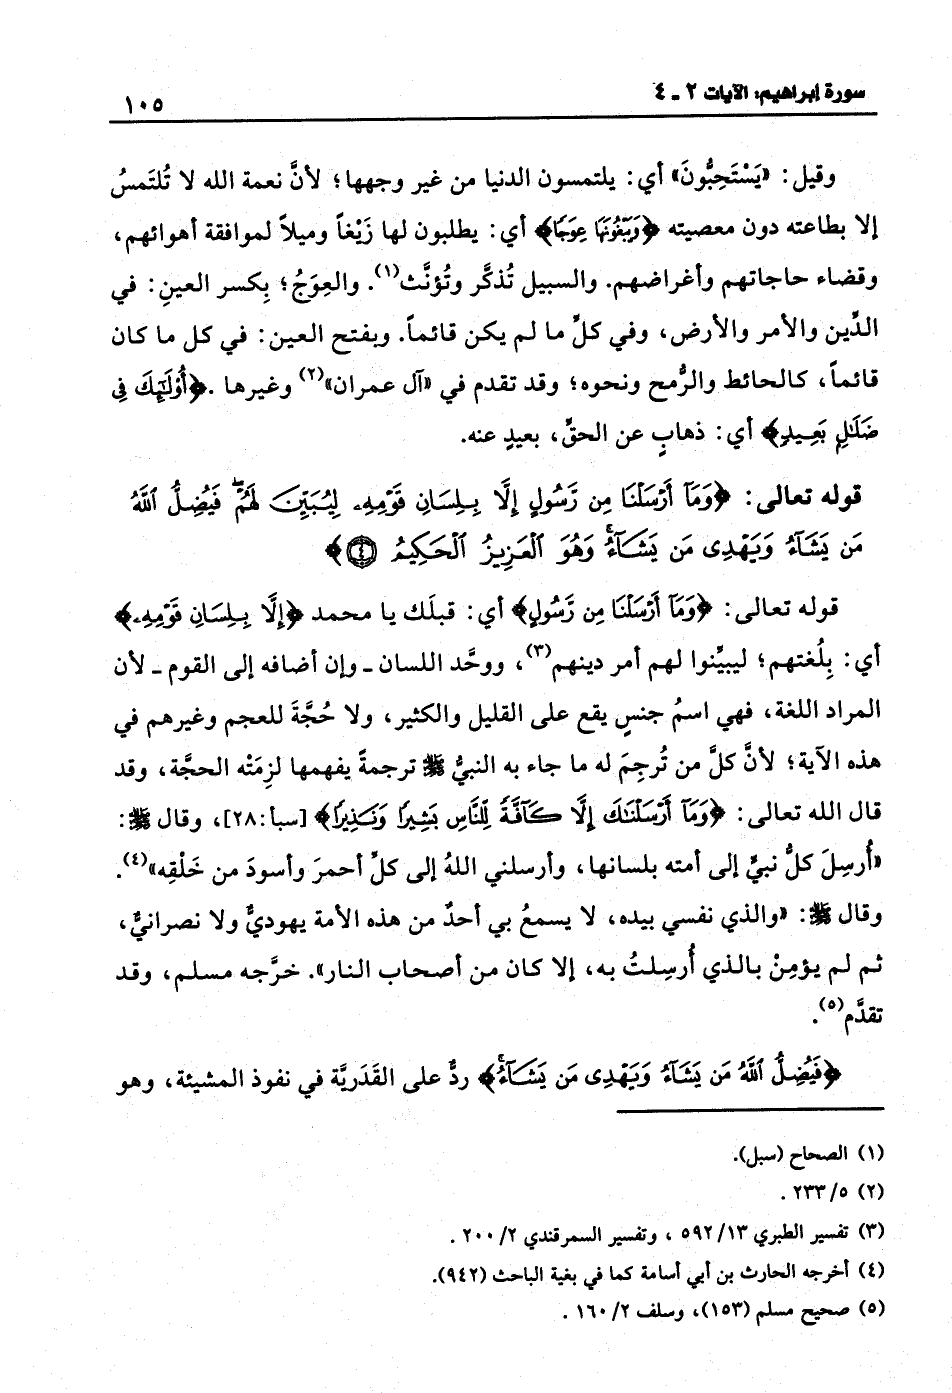 سورة إبراهيم: الآيات ٢ ـ ٤
١٠٥
وقيل: «يَسْتَحِبُّونَ» أي: يلتمسون الدنيا من غير وجهها؛ لأنَّ نعمة الله لا تُلتَمسُ
إلا بطاعته دون معصيته ﴿وَيَبْغُونَهَا عِوَجًا﴾ أي: يطلبون لها زَيْغاً وميلاً لموافقة أهوائهم،
وقضاء حاجاتهم وأغراضهم. والسبيل تُذكَّر وتُؤنَّث(١). والعِوَجُ؛ بِكسر العينِ: في
الدِّين والأمر والأرض، وفي كلِّ ما لم يكن قائماً. وبفتح العين: في كل ما كان
قائماً، كالحائط والرُّمح ونحوه؛ وقد تقدم في «آل عمران»(٢) وغيرها .﴿أُوْلَٰٓئِكَ فِى
ضَلَٰلٍۭ بَعِيدٍ﴾ أي: ذهابٍ عن الحقِّ، بعيدٍ عنه.
قوله تعالى: ﴿وَمَآ أَرْسَلْنَا مِن رَّسُولٍ إِلَّا بِلِسَانِ قَوْمِهِۦ لِيُبَيِّنَ لَهُمْۖ فَيُضِلُّ ٱللَّهُ
مَن يَشَآءُ وَيَهْدِى مَن يَشَآءُۚ وَهُوَ ٱلْعَزِيزُ ٱلْحَكِيمُ ۝٤﴾
قوله تعالى: ﴿وَمَآ أَرْسَلْنَا مِن رَّسُولٍ﴾ أي: قبلَك يا محمد ﴿إِلَّا بِلِسَانِ قَوْمِهِۦ﴾
أي: بِلُغتهم؛ ليبيِّنوا لهم أمر دينهم(٣)، ووحَّد اللسان ـ وإن أضافه إلى القوم ـ لأن
المراد اللغة، فهي اسمُ جنسٍ يقع على القليل والكثير، ولا حُجَّةَ للعجم وغيرهم في
هذه الآية؛ لأنَّ كلَّ من تُرجِمَ له ما جاء به النبيُّ ﷺ ترجمةً يفهمها لزِمَتْه الحجَّة، وقد
قال الله تعالى: ﴿وَمَآ أَرْسَلْنَٰكَ إِلَّا كَآفَّةً لِّلنَّاسِ بَشِيرًا وَنَذِيرًا﴾ [سبأ:٢٨]، وقال ﷺ:
«أُرسِلَ كلُّ نبيٍّ إلى أمته بلسانها، وأرسلني اللهُ إلى كلِّ أحمرَ وأسودَ من خَلْقِه»(٤).
وقال ﷺ: «والذي نفسي بيده، لا يسمعُ بي أحدٌ من هذه الأمة يهوديٌّ ولا نصرانيٌّ،
ثم لم يؤمِنْ بالذي أُرسِلتُ به، إلا كان من أصحاب النار». خرَّجه مسلم، وقد
تقدَّم(٥).
﴿فَيُضِلُّ ٱللَّهُ مَن يَشَآءُ وَيَهْدِى مَن يَشَآءُۚ﴾ ردٌّ على القَدَريَّة في نفوذ المشيئة، وهو
(١) الصحاح (سبل).
(٢) ٥/ ٢٣٣ .
(٣) تفسير الطبري ١٣/ ٥٩٢ ، وتفسير السمرقندي ٢/ ٢٠٠ .
(٤) أخرجه الحارث بن أبي أسامة كما في بغية الباحث (٩٤٢).
(٥) صحيح مسلم (١٥٣)، وسلف ٢/ ١٦٠ .